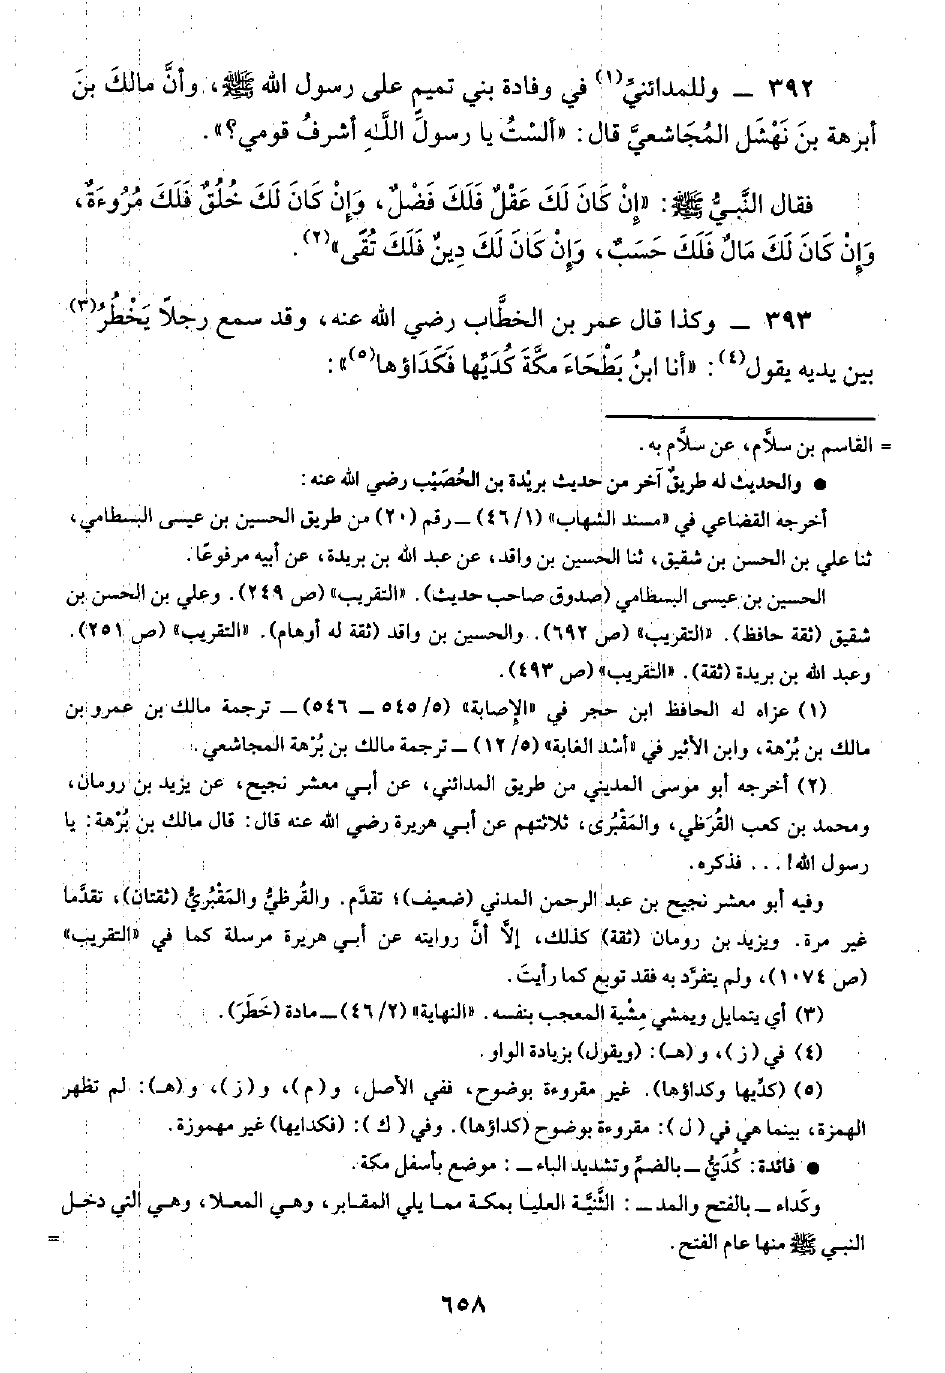 ٣٩٢ ــ وللمدائنيِّ(١) في وفادة بني تميم على رسول الله ﷺ، وأنَّ مالكَ بنَ
أبرهة بنَ نَهْشَل المُجَاشعيَّ قال: «ألسْتُ يا رسولَ اللَّـٰهِ أشرفُ قومي؟».
فقال النَّبيُّ ﷺ: «إِنْ كَانَ لَكَ عَقْلٌ فَلَكَ فَضْلٌ، وَإِنْ كَانَ لَكَ خُلُقٌ فَلَكَ مُرُوءَةٌ،
وَإِنْ كَانَ لَكَ مَالٌ فَلَكَ حَسَبٌ، وَإِنْ كَانَ لَكَ دِينٌ فَلَكَ تُقًى»(٢).
٣٩٣ ــ وكذا قال عمر بن الخطَّاب رضي الله عنه، وقد سمع رجلاً يَخْطُرُ(٣)
بين يديه يقول(٤): «أنا ابنُ بَطْحَاءَ مكَّةَ كُدَيِّها فَكَدَاؤها(٥)»:
= القاسم بن سلاَّم، عن سلاَّم به.
● والحديث له طريقٌ آخر من حديث بريْدة بن الحُصَيْب رضي الله عنه:
أخرجه القضاعي في «مسند الشهاب» (٤٦/١) ــ رقم (٢٠) من طريق الحسين بن عيسى البسطامي،
ثنا علي بن الحسن بن شقيق، ثنا الحسين بن واقد، عن عبد الله بن بريدة، عن أبيه مرفوعًا.
الحسين بن عيسى البسطامي (صدوق صاحب حديث). «التقريب» (ص ٢٤٩). وعلي بن الحسن بن
شقيق (ثقة حافظ). «التقريب» (ص ٦٩٢). والحسين بن واقد (ثقة له أوهام). «التقريب» (ص ٢٥١).
وعبد الله بن بريدة (ثقة). «التقريب» (ص ٤٩٣).
(١) عزاه له الحافظ ابن حجر في «الإصابة» (٥٤٥/٥ ــ ٥٤٦) ــ ترجمة مالك بن عمرو بن
مالك بن بُرْهة، وابن الأثير في «أسْد الغابة» (١٢/٥) ــ ترجمة مالك بن بُرْهة المجاشعي.
(٢) أخرجه أبو موسى المديني من طريق المدائني، عن أبي معشر نجيح، عن يزيد بن رومان،
ومحمد بن كعب القُرَظي، والمَقْبُرى، ثلاثتهم عن أبي هريرة رضي الله عنه قال: قال مالك بن بُرْهة: يا
رسول الله! ... فذكره.
وفيه أبو معشر نجيح بن عبد الرحمن المدني (ضعيف)؛ تقدَّم. والقُرظيُّ والمَقْبُريُّ (ثقتان)، تقدَّما
غير مرة. ويزيد بن رومان (ثقة) كذلك، إلاَّ أنَّ روايته عن أبي هريرة مرسلة كما في «التقريب»
(ص ١٠٧٤)، ولم يتفرَّد به فقد توبع كما رأيتَ.
(٣) أي يتمايل ويمشي مِشْية المعجب بنفسه. «النهاية» (٤٦/٢) ــ مادة (خَطَرَ).
(٤) في (ز)، و (هـ): (ويقول) بزيادة الواو.
(٥) (كدِّيها وكداؤها). غير مقروءة بوضوح، ففي الأصل، و (م)، و (ز)، و (هـ): لم تظهر
الهمزة، بينما هي في (ل): مقروءة بوضوح (كداؤها). وفي (ك): (فكدايها) غير مهموزة.
● فائدة: كُدَيُّ ــ بالضمِّ وتشديد الياء ــ: موضع بأسفل مكة.
وكَداء ــ بالفتح والمد ــ: الثَّنِيَّة العليا بمكة مما يلي المقابر، وهي المعلا، وهي التي دخل
النبي ﷺ منها عام الفتح. =
٦٥٨